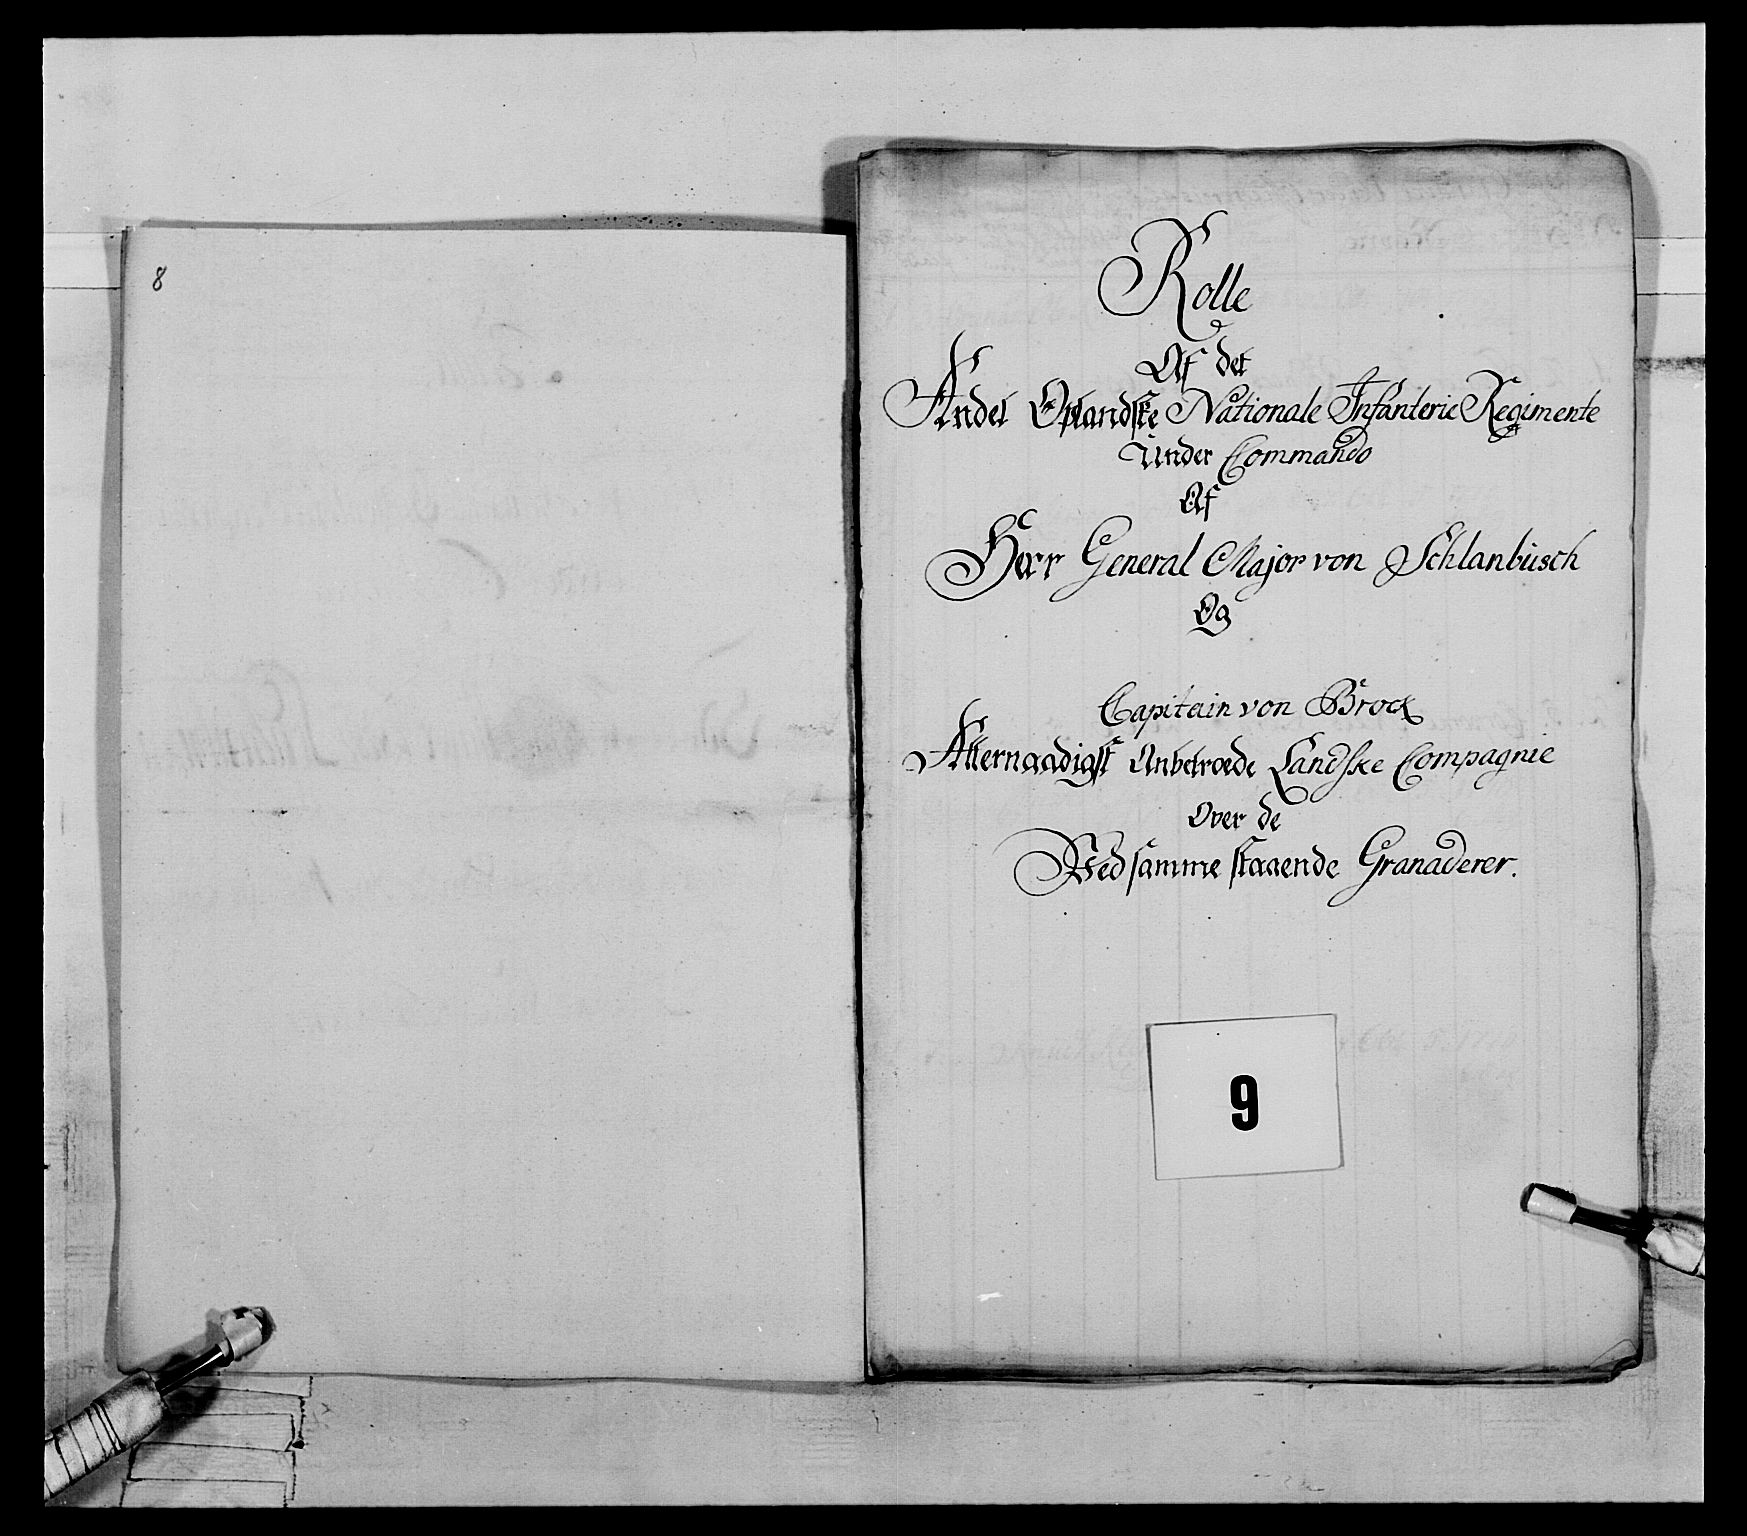 8
Rolle
Af det
Andet Oplandske Nationale Infanterie Regimente
Under Commando
Af
Herr General Major von Schlanbusch
Og
Capitain von Brock
Allernaadigst Anbetroede Landske Compagnie
Over de
Ved samme staaende Granaderer.
9